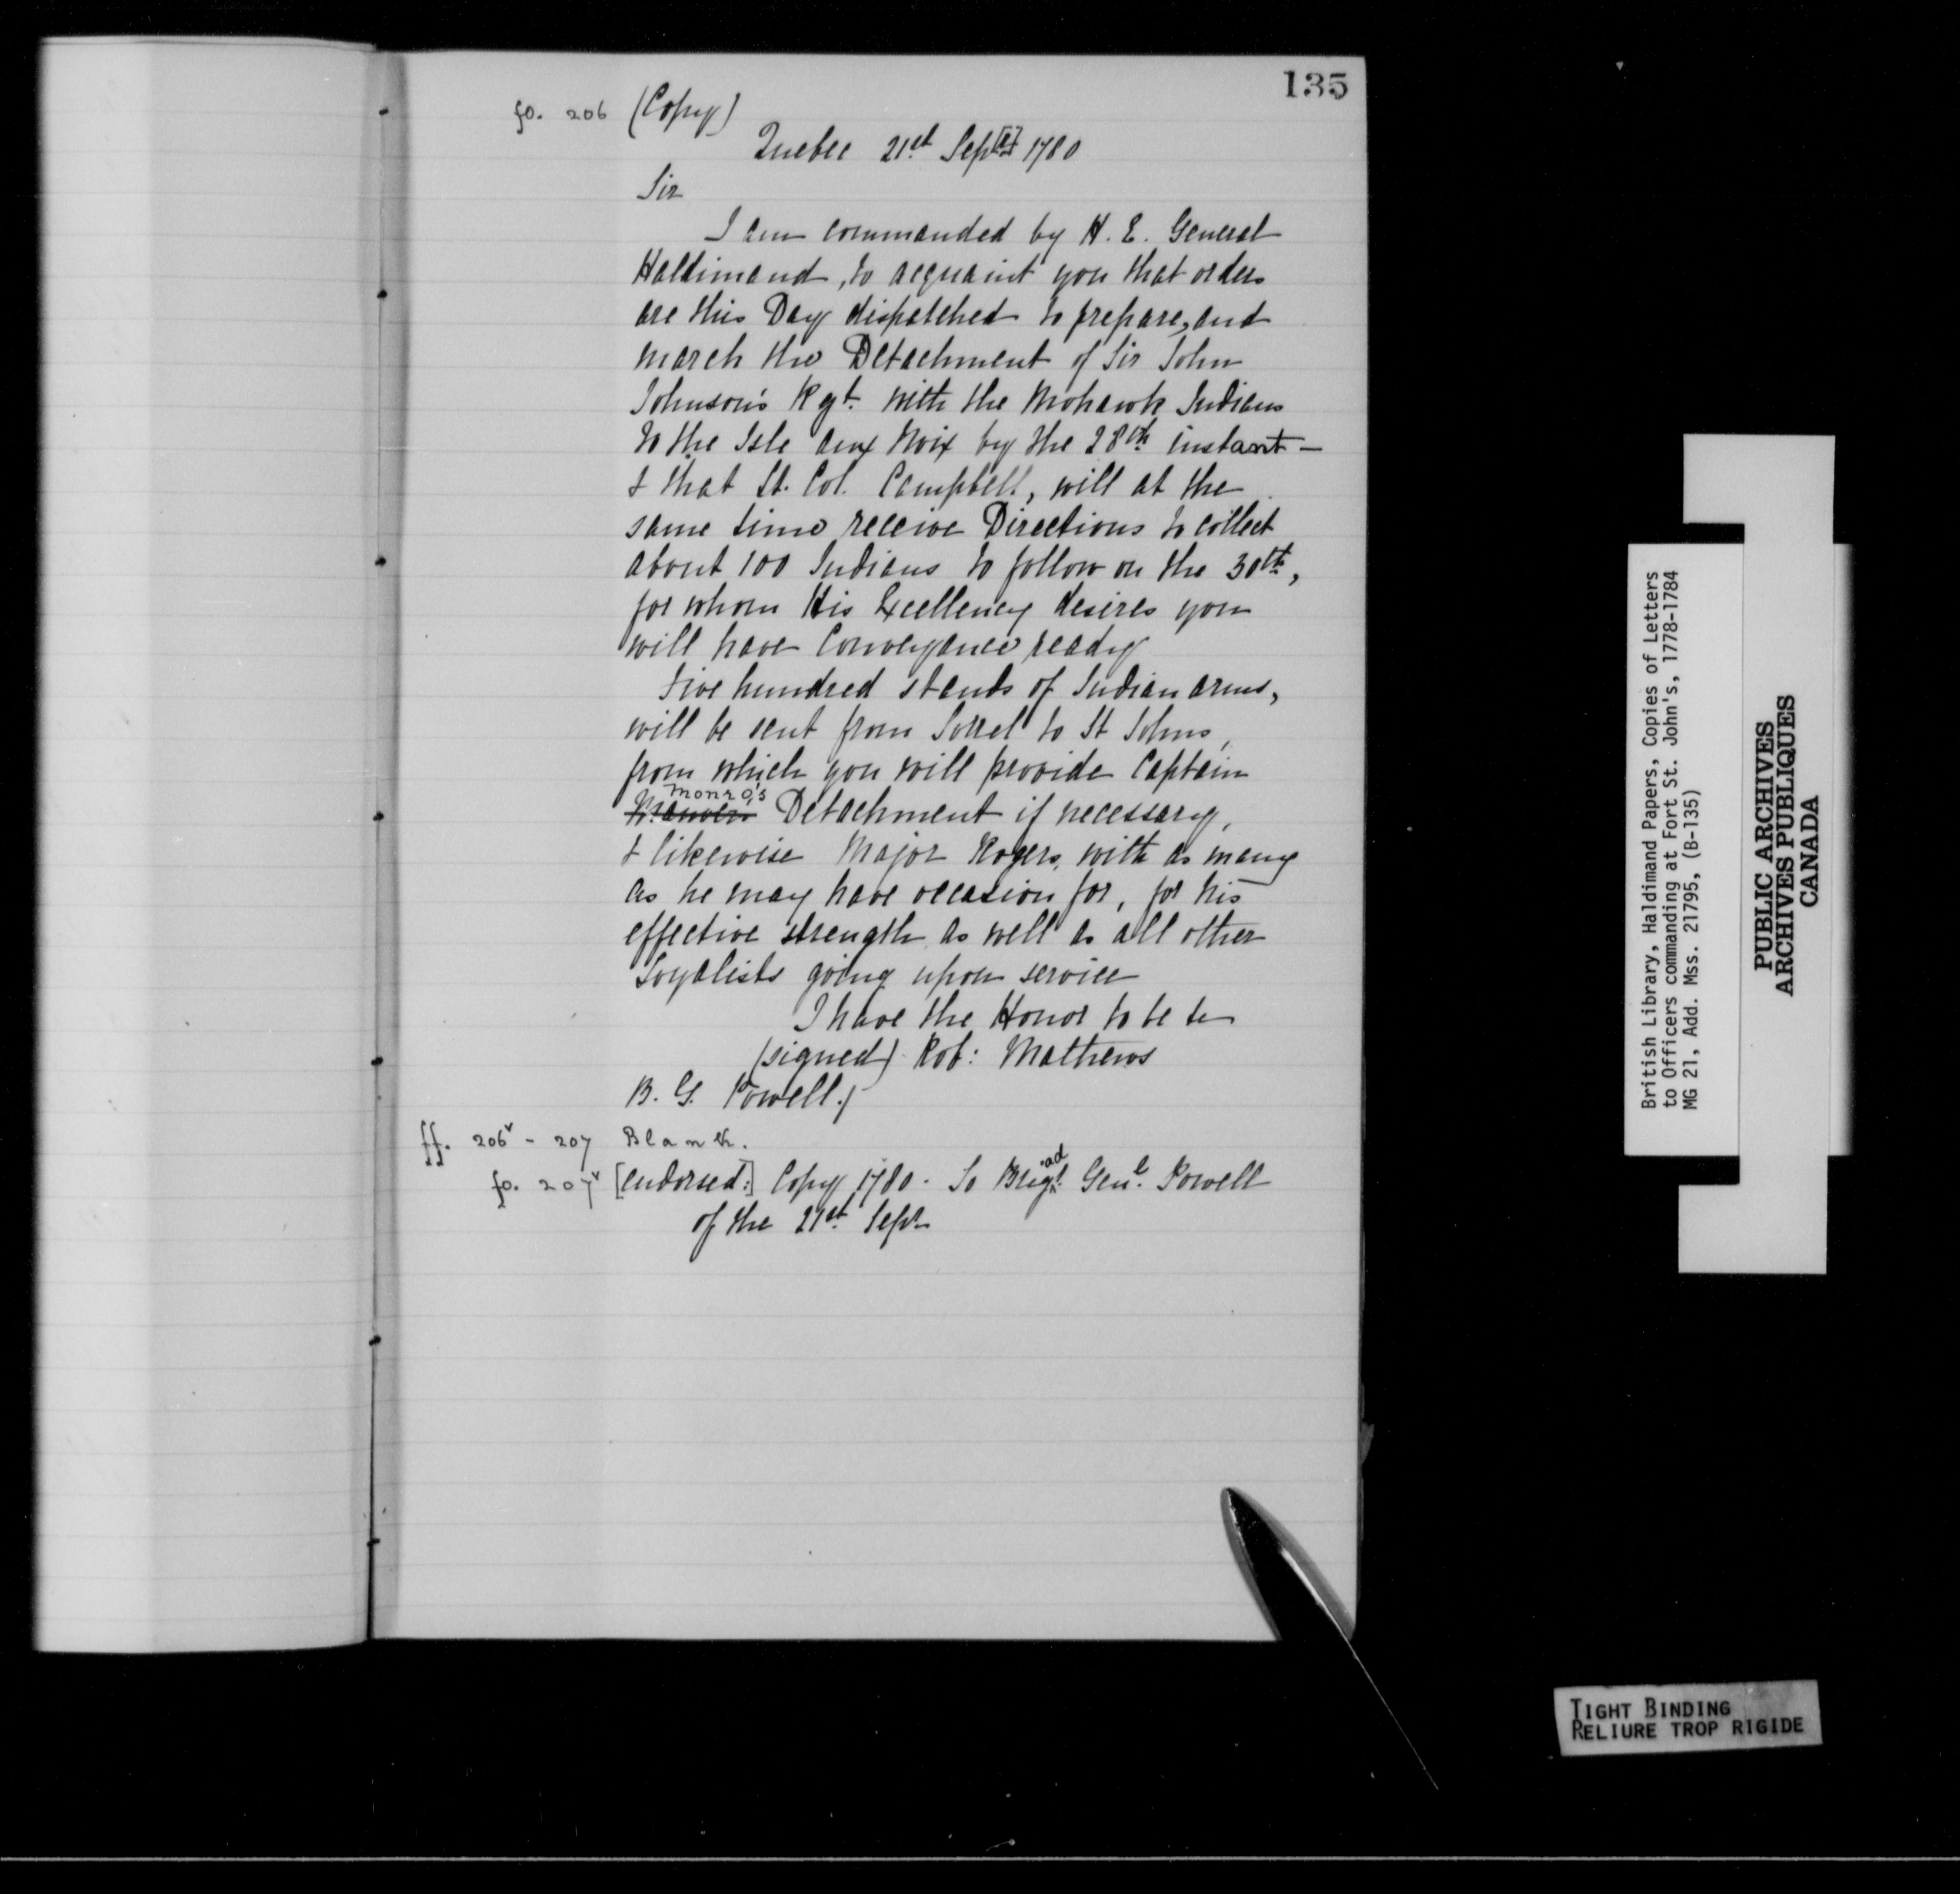 135
fo. 206 (Copy)
Quebec 21st Sept[r] 1780
Sir
I am commanded by H. E. General
Haldimand, to acquaint you that orders
are this Day dispatched to prepare, and
march the Detachment of Sir John
Johnson's Regt. with the Mohawk Indians
to the Isle aux Noix by the 28th instant –
& that Lt. Col. Campbell, will at the
same time receive Directions to collect
about 100 Indians to follow on the 30th,
for whom His Excellency desires you
will have Conveyance ready
Five hundred stands of Indian arms,
will be sent from Sorrel to St Johns,
from which you will provide Captain
Monro's
Detachment if necessary,
& likewise Major Rogers, with as many
as he may have occasion for, for his
effective strength as well as all other
Loyalists going upon service
I have the Honor to be &c
(signed) Rob: Mathews
B. G. Powell.)
ff. 206v - 207 Blank.
fo. 207v [endorsed:] Copy 1780 - To Brigad. Genl. Powell
of the 21st Sept
British Library, Haldimand Papers, Copies of Letters
to Officers commanding at Fort St. John's, 1778-1784
MG 21, Add. Mss. 21795, (B-135)
PUBLIC ARCHIVES
ARCHIVES PUBLIQUES
CANADA
TIGHT BINDING
RELIURE TROP RIGIDE